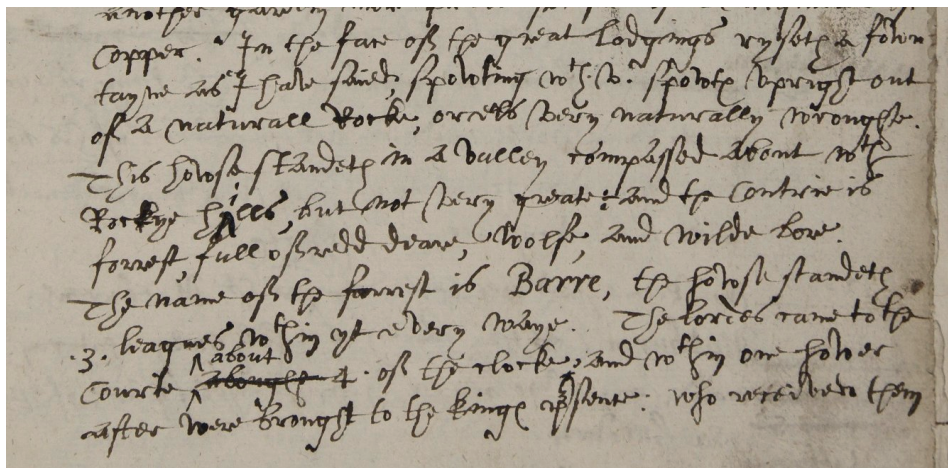 another garden more
Copper. In the face off the great Lodgings ryseth a fown
tayne as I have saied, spowting wth v. spowtꝭ vpright out
of a naturall Rocke, or ells very naturally wroughte.
This howse standeth in a valley compassed about wth
Rockye hills, but not very greate: and the Contrie is
forrest, full off redd deare, wolfe, and wilde bore.
The name off the forrest is Barre, the howse standeth
.3. leagues wthin yt every waye. The lordes came to the
Courte about 4. off the clocke, and wthin one hower
after were brought to the kingꝭ p̱sence: who received them